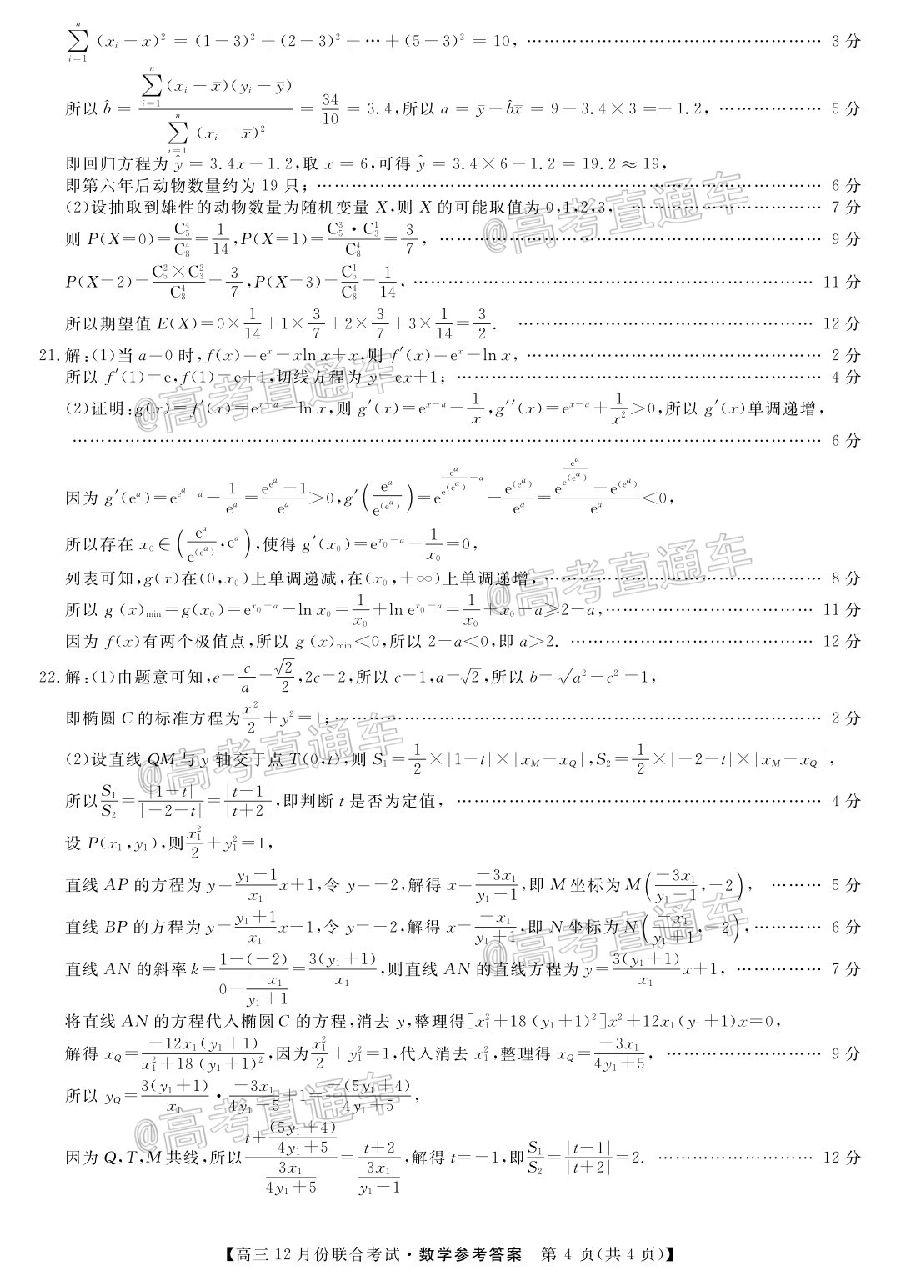 $\sum_{i=1}^{n}(x_i-x)^2=(1-3)^2-(2-3)^2-\cdots+(5-3)^2=10$, …… 3 分
所以 $\hat{b}=\frac{\sum_{i=1}^{n}(x_i-\bar{x})(y_i-\bar{y})}{\sum_{i=1}^{n}(x_i-\bar{x})^2}=\frac{34}{10}=3.4$,所以 $a=\bar{y}-\hat{b}\bar{x}=9-3.4×3=-1.2$, …… 5 分
即回归方程为 $\hat{y}=3.4x-1.2$,取 $x=6$,可得 $\hat{y}=3.4×6-1.2=19.2≈19$,
即第六年后动物数量约为 19 只; …… 6 分
(2)设抽取到雄性的动物数量为随机变量 X,则 X 的可能取值为 0,1,2,3, …… 7 分
则 $P(X=0)=\frac{C_5^4}{C_8^4}=\frac{1}{14}$,$P(X=1)=\frac{C_5^3·C_3^1}{C_8^4}=\frac{3}{7}$, …… 9 分
$P(X=2)=\frac{C_5^2×C_3^2}{C_8^4}=\frac{3}{7}$,$P(X=3)=\frac{C_5^1}{C_8^4}=\frac{1}{14}$. …… 11 分
所以期望值 $E(X)=0×\frac{1}{14}+1×\frac{3}{7}+2×\frac{3}{7}+3×\frac{1}{14}=\frac{3}{2}$. …… 12 分
21.解:(1)当 $a=0$ 时,$f(x)=e^x-x\ln x+x$,则 $f'(x)=e^x-\ln x$, …… 2 分
所以 $f'(1)=e$,$f(1)=e+1$,切线方程为 $y=ex+1$; …… 4 分
(2)证明:$g(x)=f'(x)=e^{x-a}-\ln x$,则 $g'(x)=e^{x-a}-\frac{1}{x}$,$g''(x)=e^{x-a}+\frac{1}{x^2}>0$,所以 $g'(x)$单调递增,
…… 6 分
因为 $g'(e^a)=e^{e^a-a}-\frac{1}{e^a}=\frac{e^{e^a}-1}{e^a}>0$,$g'\left(\frac{e^a}{e^{(e^a)}}\right)=e^{\frac{e^a}{e^{(e^a)}}-a}-\frac{e^{(e^a)}}{e^a}=\frac{e^{\frac{e^a}{e^{(e^a)}}}-e^{(e^a)}}{e^a}<0$,
所以存在 $x_0∈\left(\frac{e^a}{e^{(e^a)}},e^a\right)$,使得 $g'(x_0)=e^{x_0-a}-\frac{1}{x_0}=0$,
列表可知,$g(x)$在$(0,x_0)$上单调递减,在$(x_0,+∞)$上单调递增, …… 8 分
所以 $g(x)_{min}=g(x_0)=e^{x_0-a}-\ln x_0=\frac{1}{x_0}+\ln e^{x_0-a}=\frac{1}{x_0}+x_0-a≥2-a$, …… 11 分
因为 $f(x)$有两个极值点,所以 $g(x)_{min}<0$,所以 $2-a<0$,即 $a>2$. …… 12 分
22.解:(1)由题意可知,$e=\frac{c}{a}=\frac{\sqrt{2}}{2}$,$2c=2$,所以 $c=1$,$a=\sqrt{2}$,所以 $b=\sqrt{a^2-c^2}=1$,
即椭圆 C 的标准方程为$\frac{x^2}{2}+y^2=1$; …… 2 分
(2)设直线 QM 与 y 轴交于点 $T(0,t)$,则 $S_1=\frac{1}{2}×|1-t|×|x_M-x_Q|$,$S_2=\frac{1}{2}×|-2-t|×|x_M-x_Q$ ,
所以$\frac{S_1}{S_2}=\frac{|1-t|}{|-2-t|}=\left|\frac{t-1}{t+2}\right|$,即判断 t 是否为定值, …… 4 分
设 $P(x_1,y_1)$,则$\frac{x_1^2}{2}+y_1^2=1$,
直线 AP 的方程为 $y=\frac{y_1-1}{x_1}x+1$,令 $y=-2$,解得 $x=\frac{-3x_1}{y_1-1}$,即 M 坐标为 $M\left(\frac{-3x_1}{y_1-1},-2\right)$, …… 5 分
直线 BP 的方程为 $y=\frac{y_1+1}{x_1}x-1$,令 $y=-2$,解得 $x=\frac{-x_1}{y_1+1}$,即 N 坐标为 $N\left(\frac{-x_1}{y_1+1},-2\right)$, …… 6 分
直线 AN 的斜率 $k=\frac{1-(-2)}{0-\frac{-x_1}{y_1+1}}=\frac{3(y_1+1)}{x_1}$,则直线 AN 的直线方程为 $y=\frac{3(y_1+1)}{x_1}x+1$, …… 7 分
将直线 AN 的方程代入椭圆 C 的方程,消去 y,整理得$[x_1^2+18(y_1+1)^2]x^2+12x_1(y_1+1)x=0$,
解得 $x_Q=\frac{-12x_1(y_1+1)}{x_1^2+18(y_1+1)^2}$,因为$\frac{x_1^2}{2}+y_1^2=1$,代入消去 $x_1^2$,整理得 $x_Q=\frac{-3x_1}{4y_1+5}$, …… 9 分
所以 $y_Q=\frac{3(y_1+1)}{x_1}·\frac{-3x_1}{4y_1+5}+1=\frac{-(5y_1+4)}{4y_1+5}$,
因为 Q,T,M 共线,所以$\frac{t+\frac{(5y_1+4)}{4y_1+5}}{\frac{3x_1}{4y_1+5}}=\frac{t+2}{\frac{3x_1}{y_1-1}}$,解得 $t=-1$,即$\frac{S_1}{S_2}=\frac{|t-1|}{|t+2|}=2$. …… 12 分
@高考直通车
@高考直通车
@高考直通车
@高考直通车
@高考直通车
@高考直通车
【高三 12 月份联合考试·数学参考答案 第 4 页(共 4 页)】